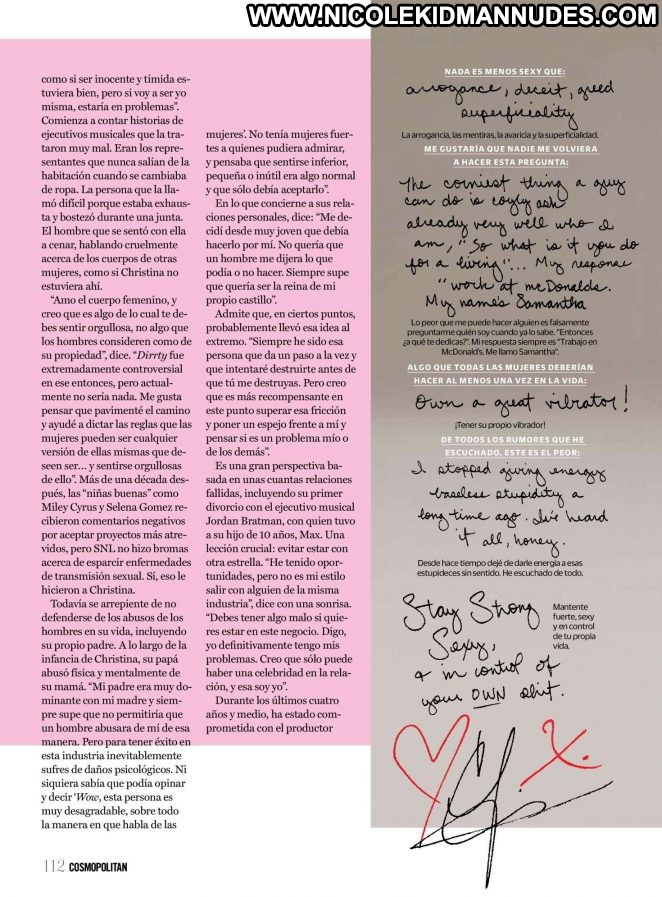 WWW.NICOLEKIDMANNUDES.COM
como si ser inocente y tímida es-
tuviera bien, pero si voy a ser yo
misma, estaría en problemas”.
Comienza a contar historias de
ejecutivos musicales que la tra-
taron muy mal. Eran los repre-
sentantes que nunca salían de la
habitación cuando se cambiaba
de ropa. La persona que la lla-
mó difícil porque estaba exhaus-
ta y bostezó durante una junta.
El hombre que se sentó con ella
a cenar, hablando cruelmente
acerca de los cuerpos de otras
mujeres, como si Christina no
estuviera ahí.
“Amo el cuerpo femenino, y
creo que es algo de lo cual te de-
bes sentir orgullosa, no algo que
los hombres consideren como de
su propiedad”, dice. “Dirrty fue
extremadamente controversial
en ese entonces, pero actual-
mente no sería nada. Me gusta
pensar que pavimenté el camino
y ayudé a dictar las reglas que las
mujeres pueden ser cualquier
versión de ellas mismas que de-
seen ser... y sentirse orgullosas
de ello”. Más de una década des-
pués, las “niñas buenas” como
Miley Cyrus y Selena Gomez re-
cibieron comentarios negativos
por aceptar proyectos más atre-
vidos, pero SNL no hizo bromas
acerca de esparcir enfermedades
de transmisión sexual. Sí, eso le
hicieron a Christina.
Todavía se arrepiente de no
defenderse de los abusos de los
hombres en su vida, incluyendo
su propio padre. A lo largo de la
infancia de Christina, su papá
abusó física y mentalmente de
su mamá. “Mi padre era muy do-
minante con mi madre y siem-
pre supe que no permitiría que
un hombre abusara de mí de esa
manera. Pero para tener éxito en
esta industria inevitablemente
sufres de daños psicológicos. Ni
siquiera sabía que podía opinar
y decir ‘Wow, esta persona es
muy desagradable, sobre todo
la manera en que habla de las
mujeres’. No tenía mujeres fuer-
tes a quienes pudiera admirar,
y pensaba que sentirse inferior,
pequeña o inútil era algo normal
y que sólo debía aceptarlo”.
En lo que concierne a sus rela-
ciones personales, dice: “Me de-
cidí desde muy joven que debía
hacerlo por mí. No quería que
un hombre me dijera lo que
podía o no hacer. Siempre supe
que quería ser la reina de mi
propio castillo”.
Admite que, en ciertos puntos,
probablemente llevó esa idea al
extremo. “Siempre he sido esa
persona que da un paso a la vez y
que intentaré destruirte antes de
que tú me destruyas. Pero creo
que es más recompensante en
este punto superar esa fricción
y poner un espejo frente a mí y
pensar si es un problema mío o
de los demás”.
Es una gran perspectiva ba-
sada en unas cuantas relaciones
fallidas, incluyendo su primer
divorcio con el ejecutivo musical
Jordan Bratman, con quien tuvo
a su hijo de 10 años, Max. Una
lección crucial: evitar estar con
otra estrella. “He tenido opor-
tunidades, pero no es mi estilo
salir con alguien de la misma
industria”, dice con una sonrisa.
“Debes tener algo malo si quie-
res estar en este negocio. Digo,
yo definitivamente tengo mis
problemas. Creo que sólo puede
haber una celebridad en la rela-
ción, y esa soy yo”.
Durante los últimos cuatro
años y medio, ha estado com-
prometida con el productor
NADA ES MENOS SEXY QUE:
arrogance, deceit, greed
superficiality
La arrogancia, las mentiras, la avaricia y la superficialidad.
ME GUSTARÍA QUE NADIE ME VOLVIERA
A HACER ESTA PREGUNTA:
The corniest thing a guy
can do is coyly ask
already very well who I
am, "So what is it you do
for a living"... My response
"work at mcDonalds.
My name's Samantha
Lo peor que me puede hacer alguien es falsamente
preguntarme quién soy cuando ya lo sabe. "Entonces
¿a qué te dedicas?". Mi respuesta siempre es "Trabajo en
McDonald's. Me llamo Samantha".
ALGO QUE TODAS LAS MUJERES DEBERÍAN
HACER AL MENOS UNA VEZ EN LA VIDA:
Own a great vibrator!
¡Tener su propio vibrador!
DE TODOS LOS RUMORES QUE HE
ESCUCHADO, ESTE ES EL PEOR:
I stopped giving energy
baseless stupidity a
long time ago. I've heard
it all, honey.
Desde hace tiempo dejé de darle energía a esas
estupideces sin sentido. He escuchado de todo.
Stay Strong
Sexy,
& in control of
your OWN shit.
Mantente
fuerte, sexy
y en control
de tu propia
vida.
112 COSMOPOLITAN